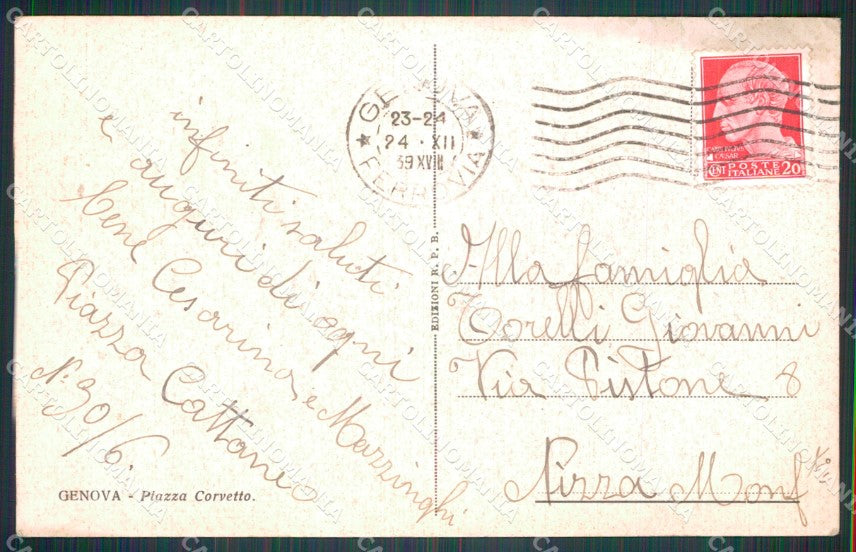 infiniti saluti
e auguri di ogni
bene Cesarina e Mazzinghi
Piazza Cattaneo
N. 30/6.
GENOVA - Piazza Corvetto.
EDIZIONI R. P. B.
GENOVA
23-24
24 · XII
39 XVIII
FERROVIA
CAIO GIULIO
CAESAR
CENT POSTE ITALIANE 20
Alla famiglia
Torelli Giovanni
Via Pistone 8
Nizza Monf
CARTOLINOMANIA